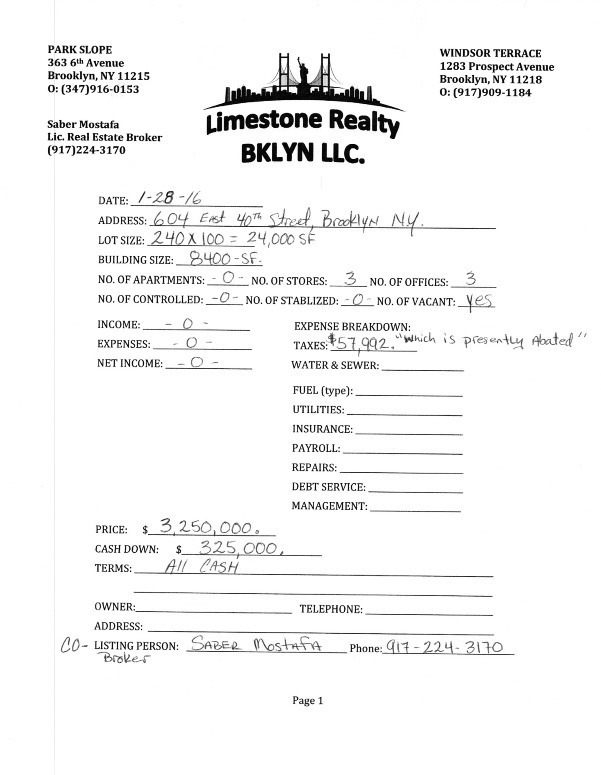 PARK SLOPE
363 6th Avenue
Brooklyn, NY 11215
O: (347)916-0153
Saber Mostafa
Lic. Real Estate Broker
(917)224-3170
Limestone Realty
BKLYN LLC.
WINDSOR TERRACE
1283 Prospect Avenue
Brooklyn, NY 11218
O: (917)909-1184
DATE: 1-28-16
ADDRESS: 604 East 40TH Street, Brooklyn N.Y.
LOT SIZE: 240 X 100 = 24,000 SF
BUILDING SIZE: 8400-SF.
NO. OF APARTMENTS: -0- NO. OF STORES: 3 NO. OF OFFICES: 3
NO. OF CONTROLLED: -0- NO. OF STABLIZED: -0- NO. OF VACANT: yes
INCOME: -0-
EXPENSES: -0-
NET INCOME: -0-
EXPENSE BREAKDOWN:
TAXES: $57,992. "which is presently Abated"
WATER & SEWER:
FUEL (type):
UTILITIES:
INSURANCE:
PAYROLL:
REPAIRS:
DEBT SERVICE:
MANAGEMENT:
PRICE: $ 3,250,000.
CASH DOWN: $ 325,000.
TERMS: All CASH
OWNER: TELEPHONE:
ADDRESS:
CO- LISTING PERSON: SABER MOSTAFA Phone: 917-224-3170
Broker
Page 1